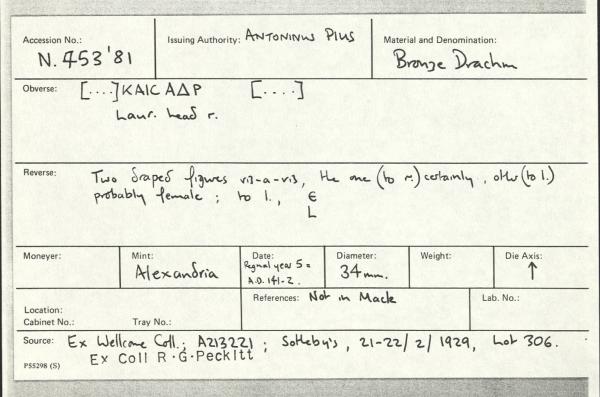 Accession No.: N.453'81
Issuing Authority: ANTONINUS PIUS
Material and Denomination: Bronze Drachm
Obverse: [....]ΚΑΙC ΑΔΡ [....]
Laur. head r.
Reverse: Two draped figures vis-a-vis, the one (to r.) certainly, other (to l.)
probably female; to l., Є
L
Moneyer:
Mint: Alexandria
Date: Regnal year 5 = A.D. 141-2.
Diameter: 34mm.
Weight:
Die Axis: ↑
Location:
Cabinet No.: Tray No.:
References: Not in Mack
Lab. No.:
Source: Ex Wellcome Coll.; A213221; Sotheby's, 21-22/2/1929, Lot 306.
Ex Coll R.G.Peckitt
P55298 (S)